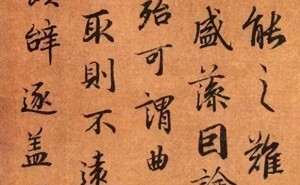 能之難
盛藻因論
殆可謂曲
取則不遠
辭逐盖